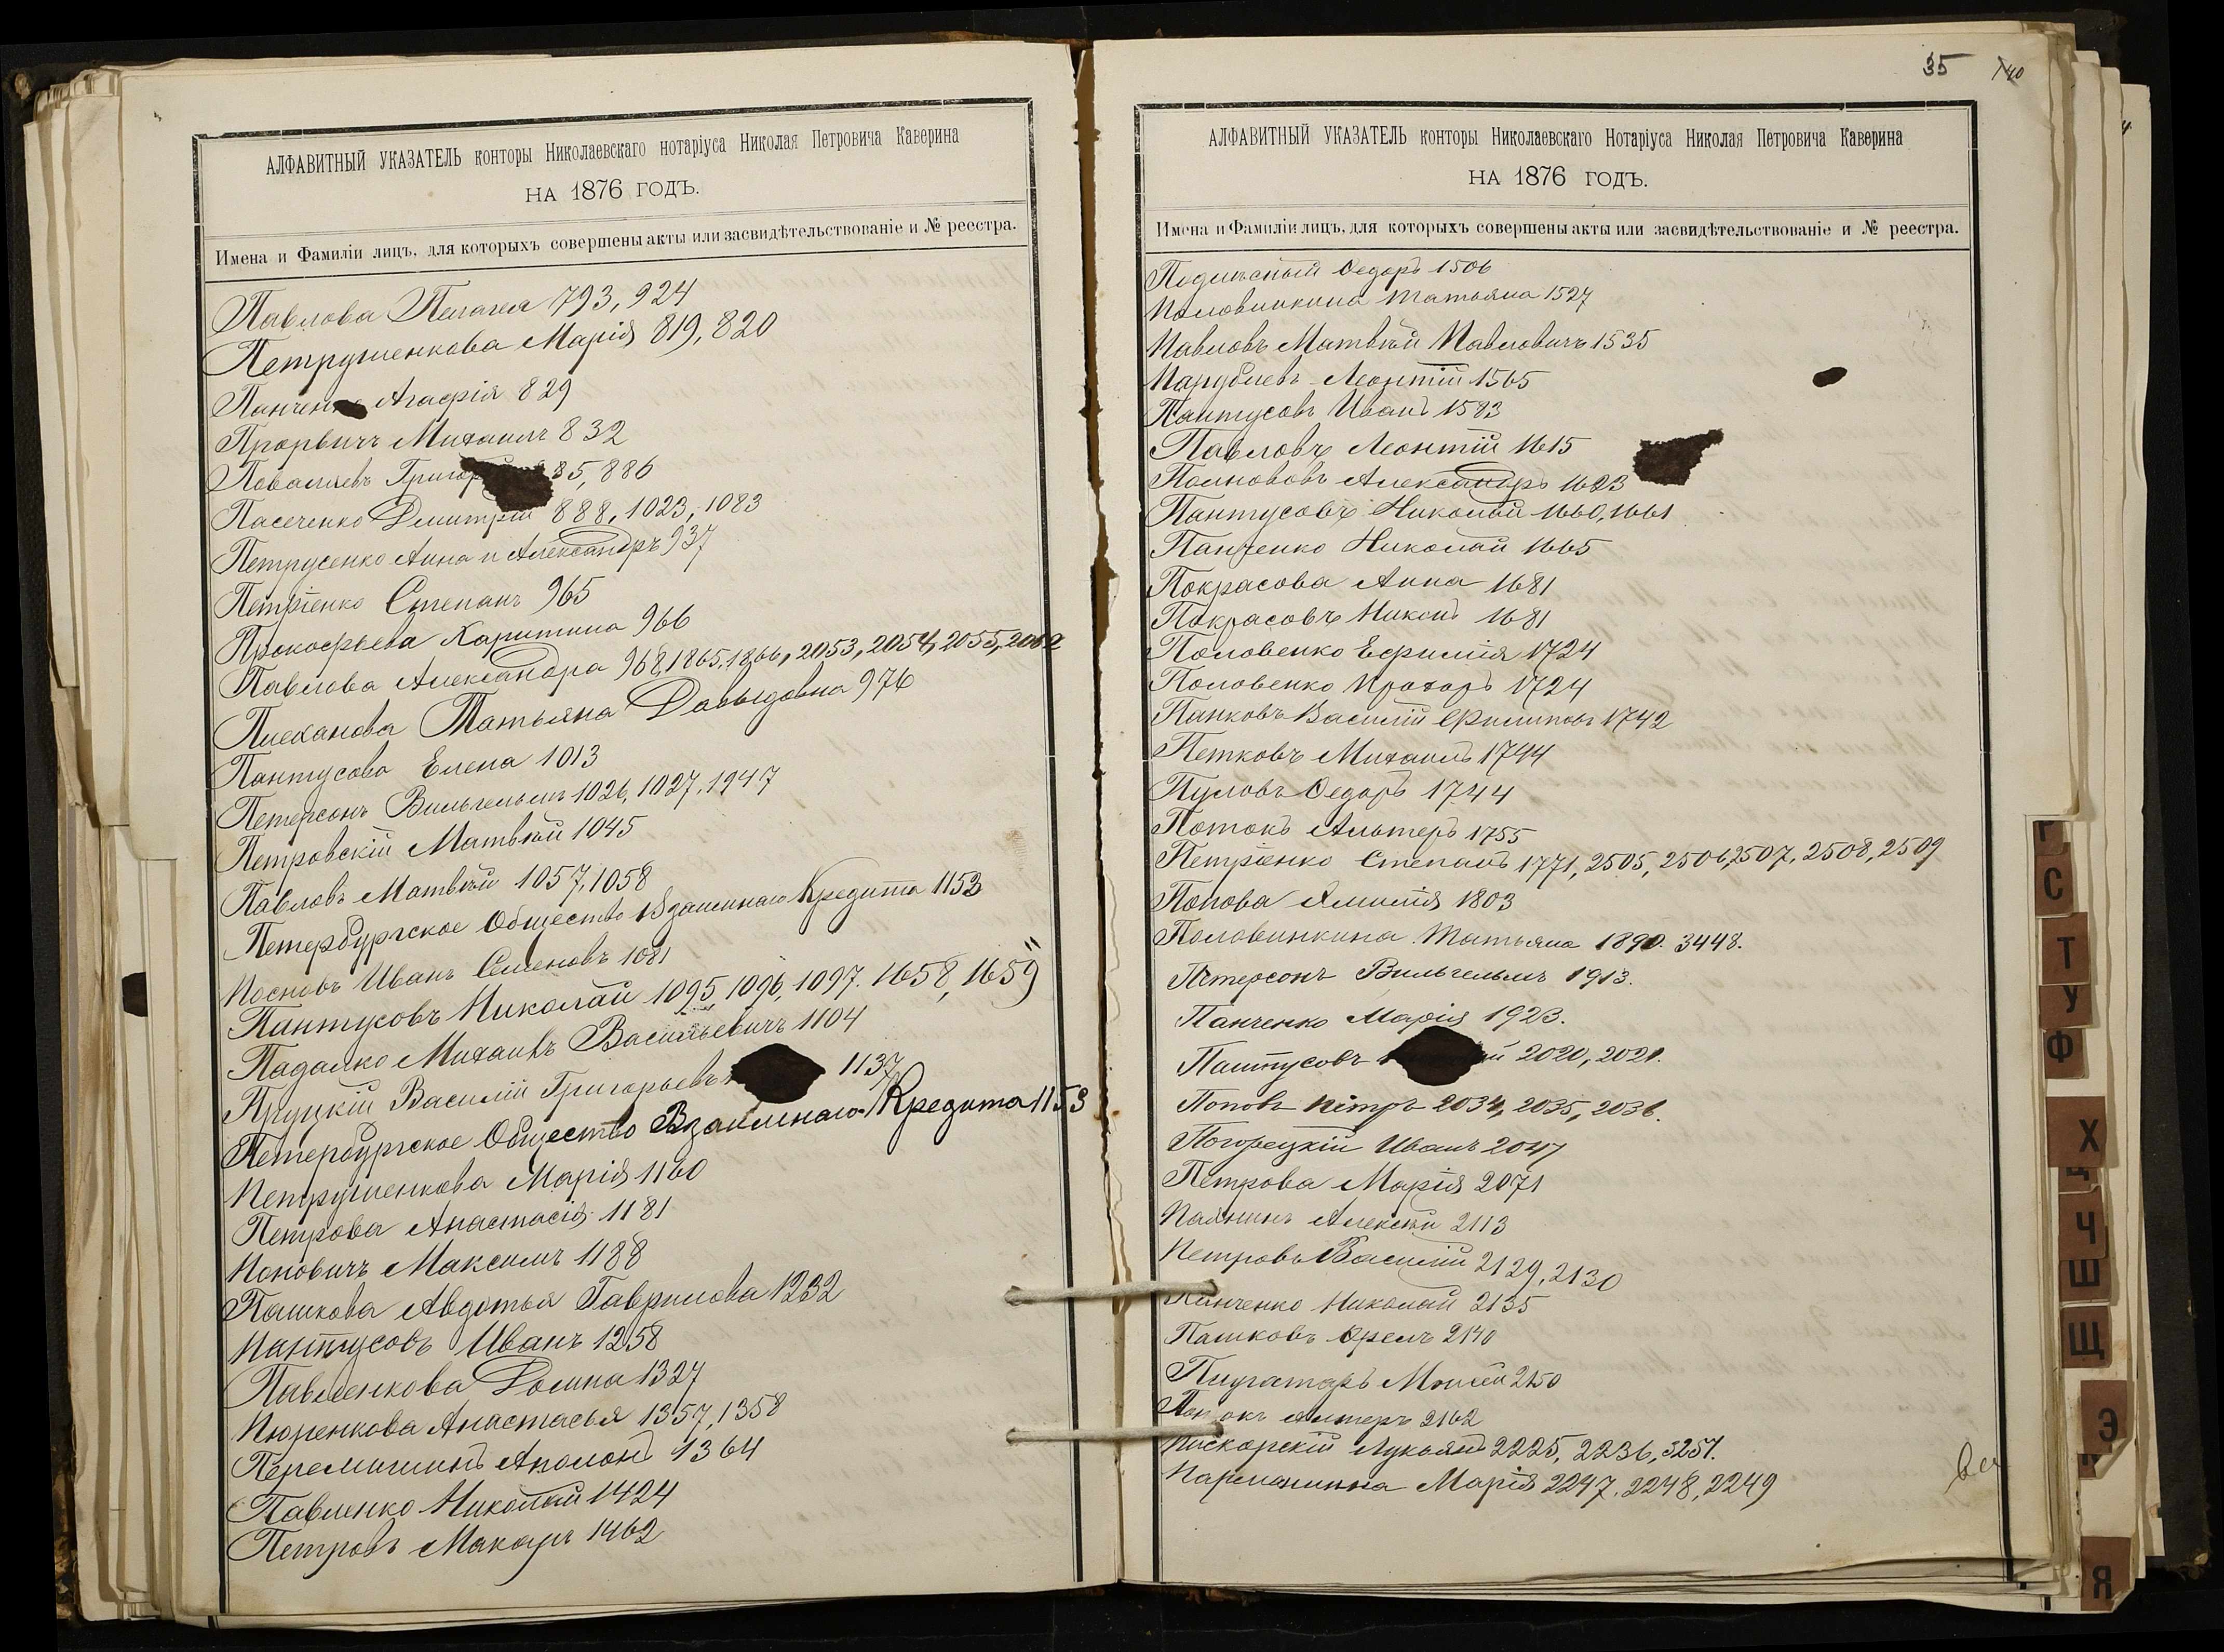 АЛФАВИТНЫЙ УКАЗАТЕЛЬ конторы Николаевскаго нотаріуса Николая Петровича Каверина
НА 1876 ГОДЪ.
Имена и Фамиліи лицъ, для которыхъ совершены акты или засвидѣтельствованіе и № реестра.
Павлова Пелагея 793, 924
Петрушенкова Марія 819, 820
Агафія 829
Прорвичъ Михаилъ 832
886
Пасеченко Дмитрій 888, 1023, 1083
Петрусенко Анна и Александръ 937
Петріенко Степанъ 965
Прокофьева Харитина 966
Павлова Александра 968, 1865, 1866, 2053, 2054, 2055, 2062
Плеханова Татьяна Давыдовна 976
Пантусова Елена 1013
Петерсонъ Вильгельмъ 1026, 1027, 1947
Петровскій Матвѣй 1045
Павловъ Матвѣй 1057, 1058
Петербургское Общество Взаимнаго Кредита 1153
Посновъ Иванъ Семеновъ 1081
Пантусовъ Николай 1095, 1096, 1097. 1658, 1659
Падалко Михаилъ Васильевичъ 1104
Пруцкій Василій Григорьевъ 1137
Петербургское Общество Взаимнаго Кредита 1153
Петрушенкова Марія 1160
Петрова Анастасія 1181
Поповичъ Максимъ 1188
Пашкова Авдотья Гаврилова 1232
Пантусовъ Иванъ 1258
Павленкова Домна 1327
Пюренкова Анастасья 1357, 1358
Аполонъ 1364
Павленко Николай 1424
Петровъ Макаръ 1462
35 140
АЛФАВИТНЫЙ УКАЗАТЕЛЬ конторы Николаевскаго Нотаріуса Николая Петровича Каверина
НА 1876 ГОДЪ.
Имена и Фамиліи лицъ, для которыхъ совершены акты или засвидѣтельствованіе и № реестра.
Ѳедоръ 1506
Половинкина Татьяна 1527
Павловъ Матвѣй Павловичъ 1535
Парубиевъ Леонтій 1565
Пантусовъ Иванъ 1583
Павловъ Леонтій 1615
Александръ 1623
Пантусовъ Николай 1660, 1661
Панченко Николай 1665
Покрасова Анна 1681
Покрасовъ 1681
Половенко Ефимія 1724
Половенко Прохоръ 1724
Панковъ Василій Филиповъ 1742
Петковъ Михаилъ 1744
Пуловъ Ѳедоръ 1744
Потокъ Альтеръ 1755
Петріенко Степанъ 1771, 2505, 2506, 2507, 2508, 2509
Попова 1803
Половинкина Татьяна 1890. 3448.
Петерсонъ Вильгельмъ 1913.
Панченко Марія 1923.
Пантусовъ 2020, 2021.
Поповъ Петръ 2034, 2035, 2036.
Погорецкій Иванъ 2047
Петрова Марія 2071
Алексѣй 2113
Петровъ Василій 2129, 2130
Панченко Николай 2135
Пашковъ 2140
2150
Потокъ Альтеръ 2162
Пискорскій Лукьянъ 2225, 2236, 3257.
Марія 2247, 2248, 2249
Г
С
Т
У
Ф
Х
Ц
Ч
Ш
Щ
Э
Я